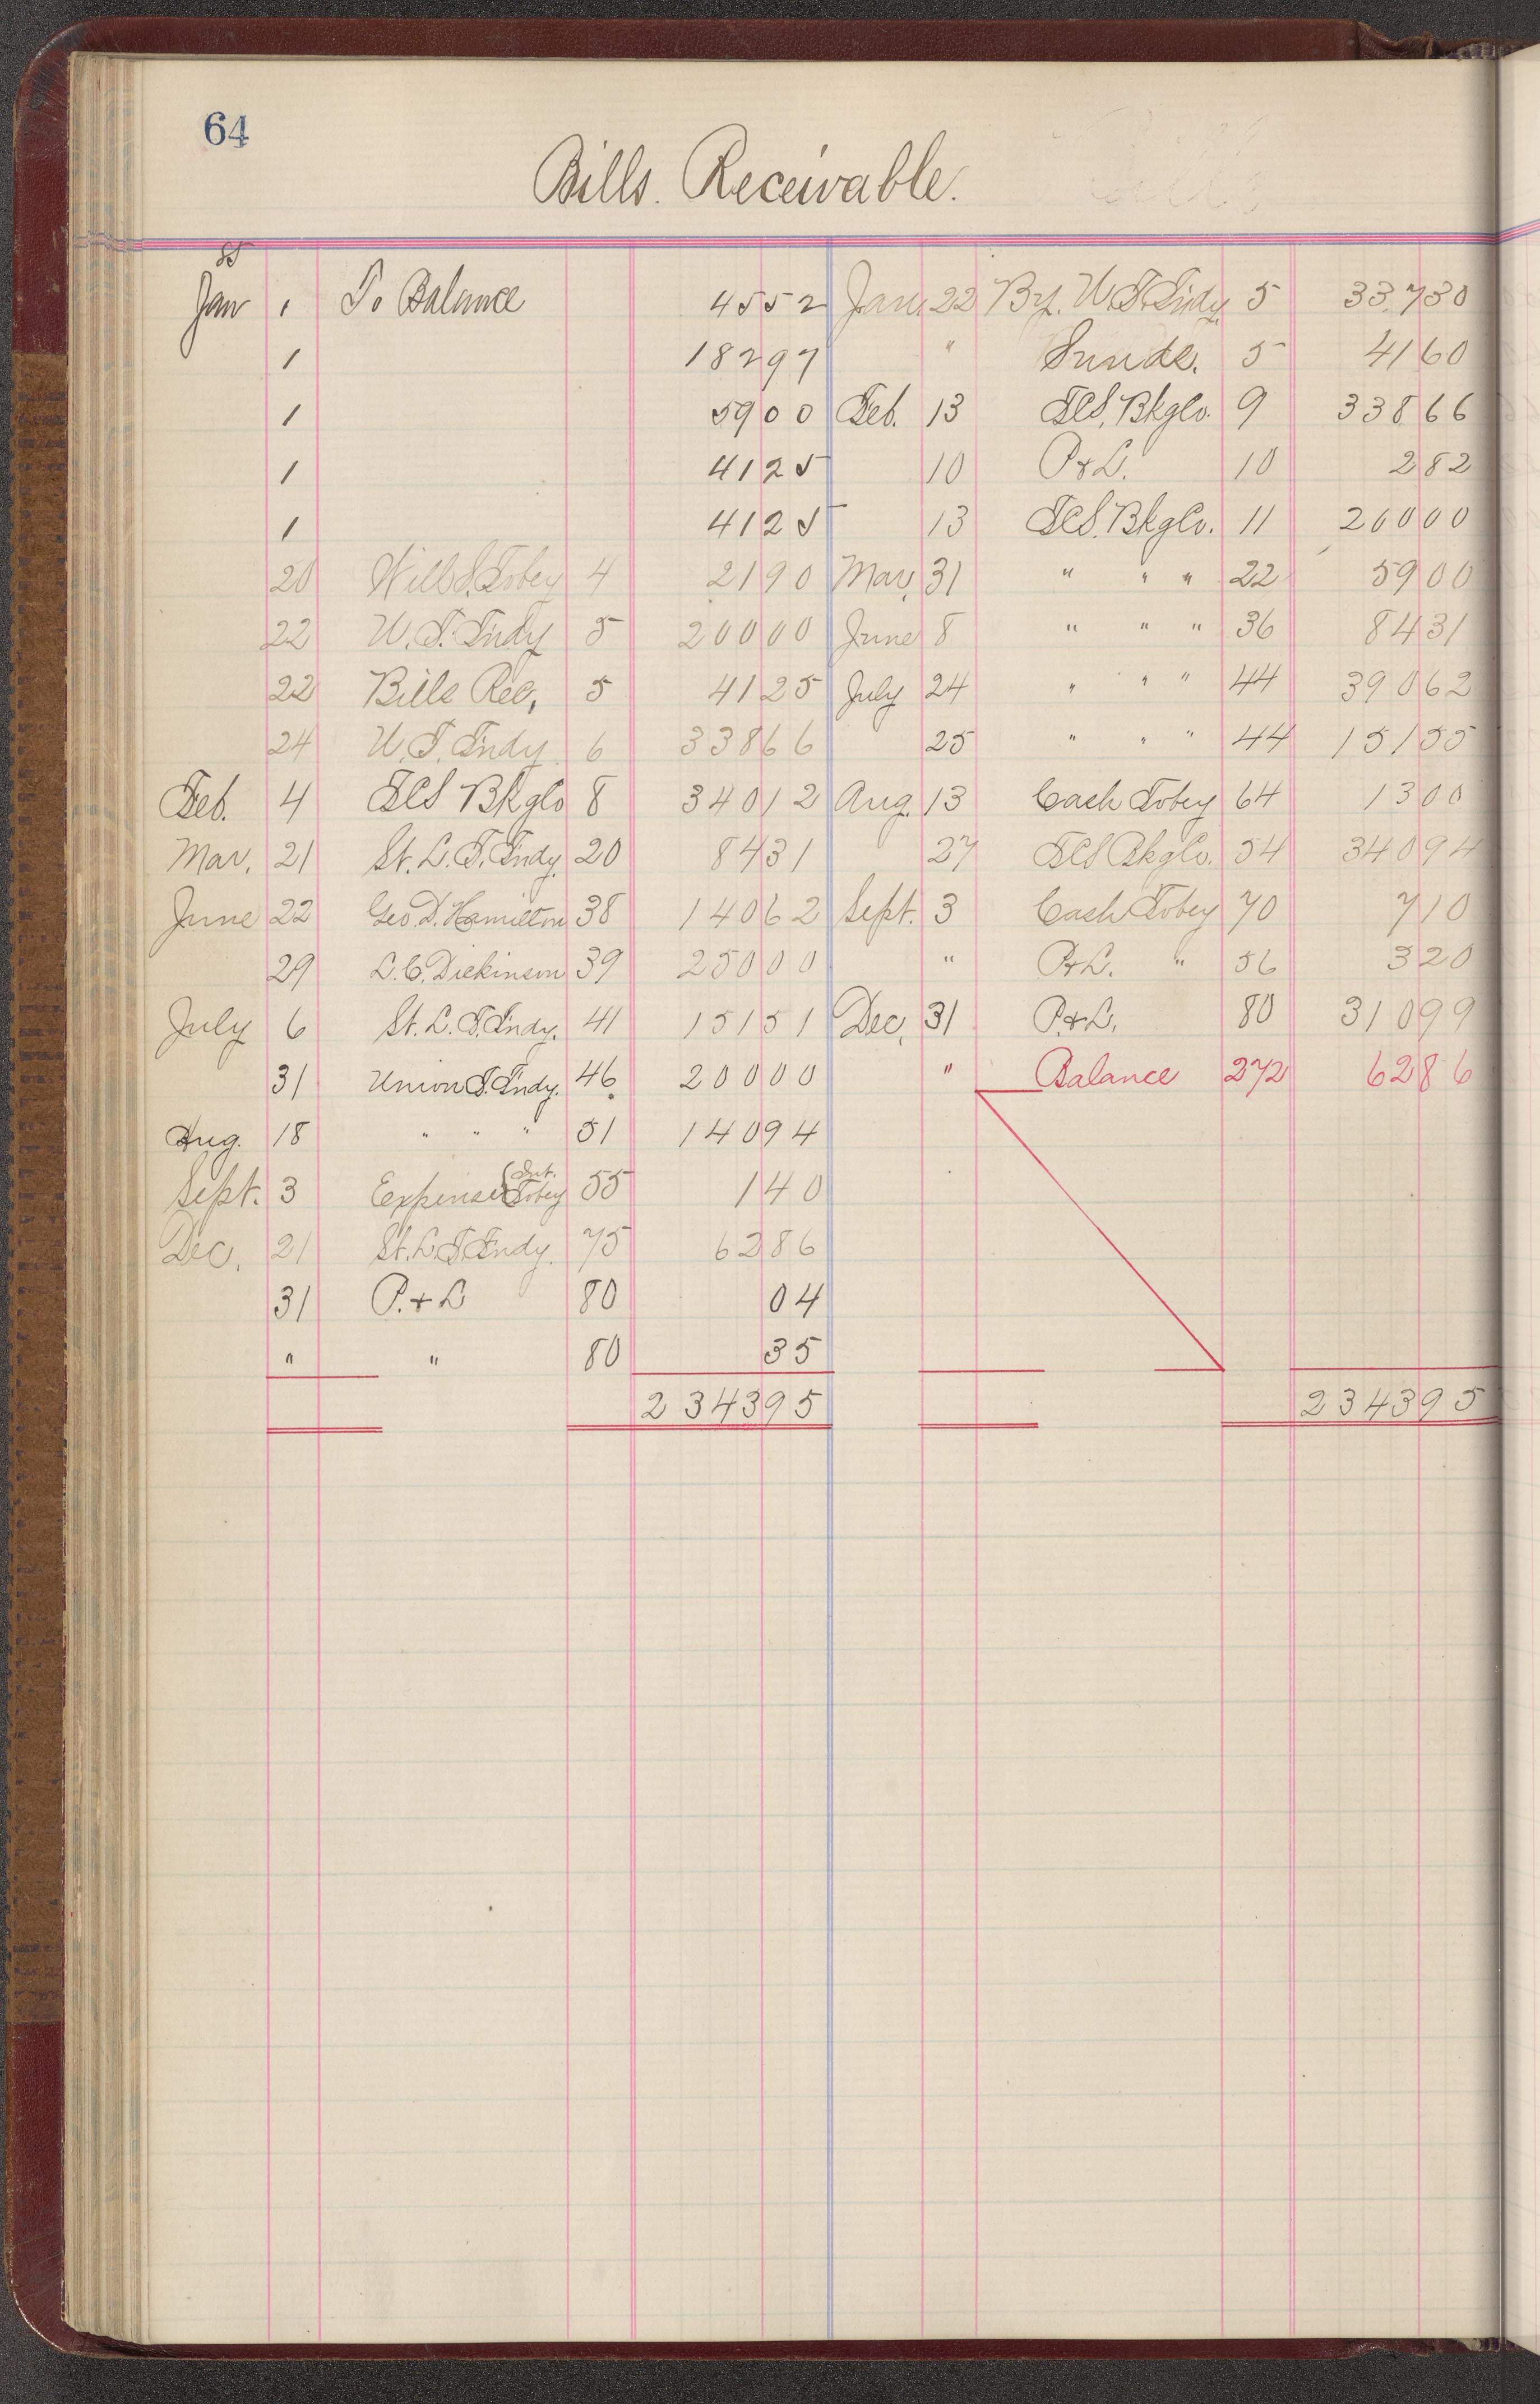 64
Bills. Receivable.
85
Jan 1 To Balance 45 52
1 182 97
1 59 00
1 41 25
1 41 25
20 Will S. Tobey 4 21 90
22 W. T. Fndy 5 200 00
22 Bills Rec, 5 41 25
24 W. T. Fndy 6 338 66
Feb. 4 Bkg Co 8 340 12
Mar. 21 St. L. T. Fndy. 20 84 31
June 22 Geo. D. Hamilton 38 140 62
29 L. C. Dickinson 39 250 00
July 6 St. L. T. Fndy. 41 151 51
31 Union T. Fndy. 46 200 00
Aug. 18 " " " 51 140 94
Sept. 3 Expense (Int. Tobey 55 1 40
Dec. 21 St. L. T. Fndy. 75 62 86
31 P. & L 80 04
" " 80 35
2343 95
Jan. 22 By. W. T. Fndy. 5 337 30
" Sunds. 5 41 60
Feb. 13 Bkg Co. 9 338 66
10 P & L. 10 2 82
13 Bkg Co. 11 200 00
Mar. 31 " " " 22 59 00
June 8 " " " 36 84 31
July 24 " " " 44 390 62
25 " " " 44 151 55
Aug. 13 Cash Tobey 64 13 00
27 Bkg Co. 54 340 94
Sept. 3 Cash Tobey 70 7 10
" P & L. " 56 3 20
Dec. 31 P. & L. 80 310 99
" Balance 272 62 86
2343 95